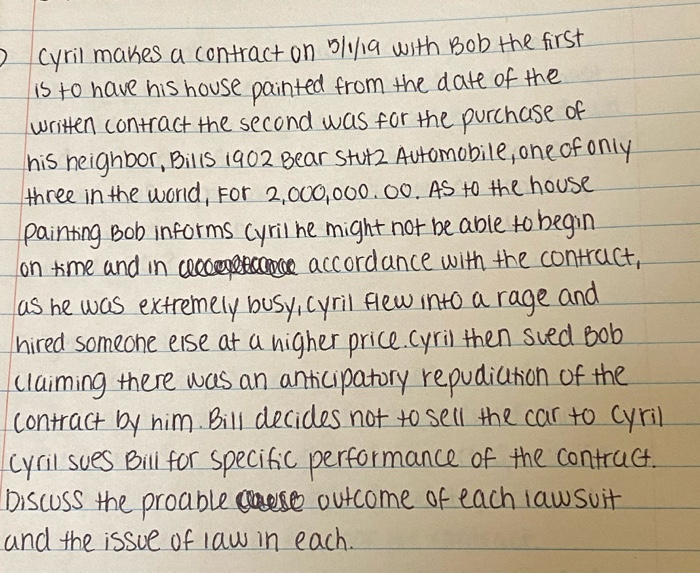 Cyril makes a contract on 5/1/19 with Bob the first
is to have his house painted from the date of the
written contract the second was for the purchase of
his neighbor, Bills 1902 Bear Stutz Automobile, one of only
three in the world, For 2,000,000.00. As to the house
painting Bob informs Cyril he might not be able to begin
on time and in accordance with the contract,
as he was extremely busy, Cyril flew into a rage and
hired someone else at a higher price. Cyril then sued Bob
claiming there was an anticipatory repudiation of the
contract by him. Bill decides not to sell the car to Cyril
Cyril sues Bill for specific performance of the contract.
Discuss the proable outcome of each lawsuit
and the issue of law in each.